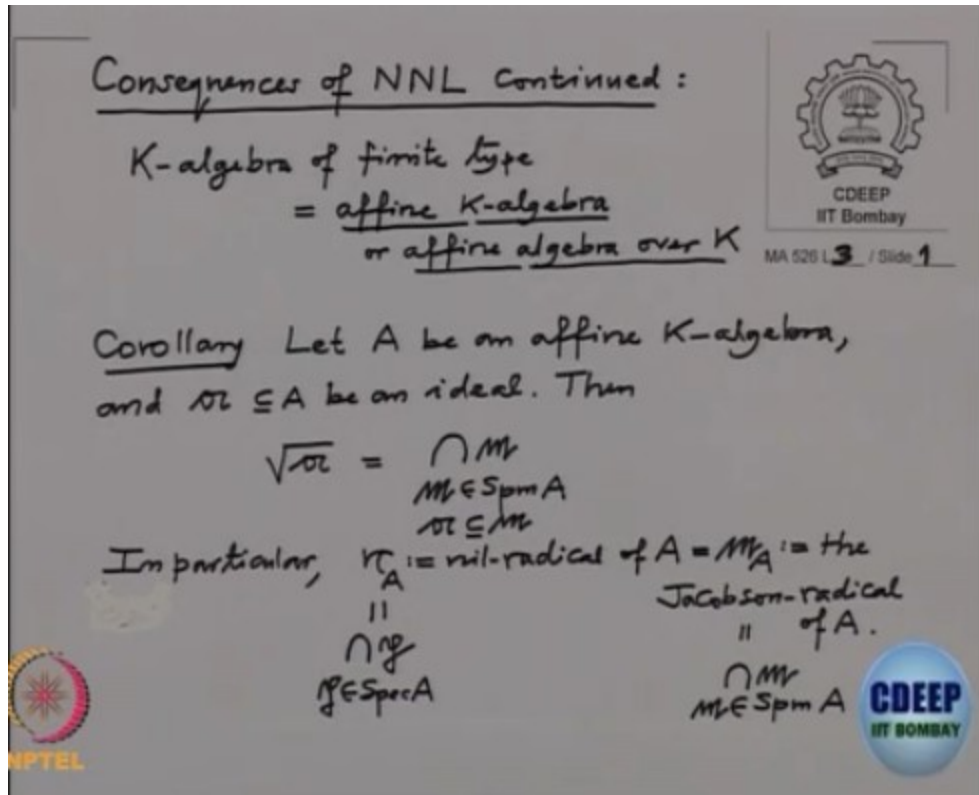 Consequences of NNL Continued :
K-algebra of finite type
= affine K-algebra
or affine algebra over K
CDEEP
IIT Bombay
MA 526 L 3 / Slide 1
Corollary Let A be an affine K-algebra,
and 𝔞 ⊆ A be an ideal. Then
√𝔞 = ∩ 𝔪
𝔪 ∈ Spm A
𝔞 ⊆ 𝔪
In particular, 𝔫_A := nil-radical of A = 𝔪_A := the
Jacobson-radical
of A.
||
∩ 𝔭
𝔭 ∈ Spec A
||
∩ 𝔪
𝔪 ∈ Spm A
NPTEL
CDEEP
IIT BOMBAY